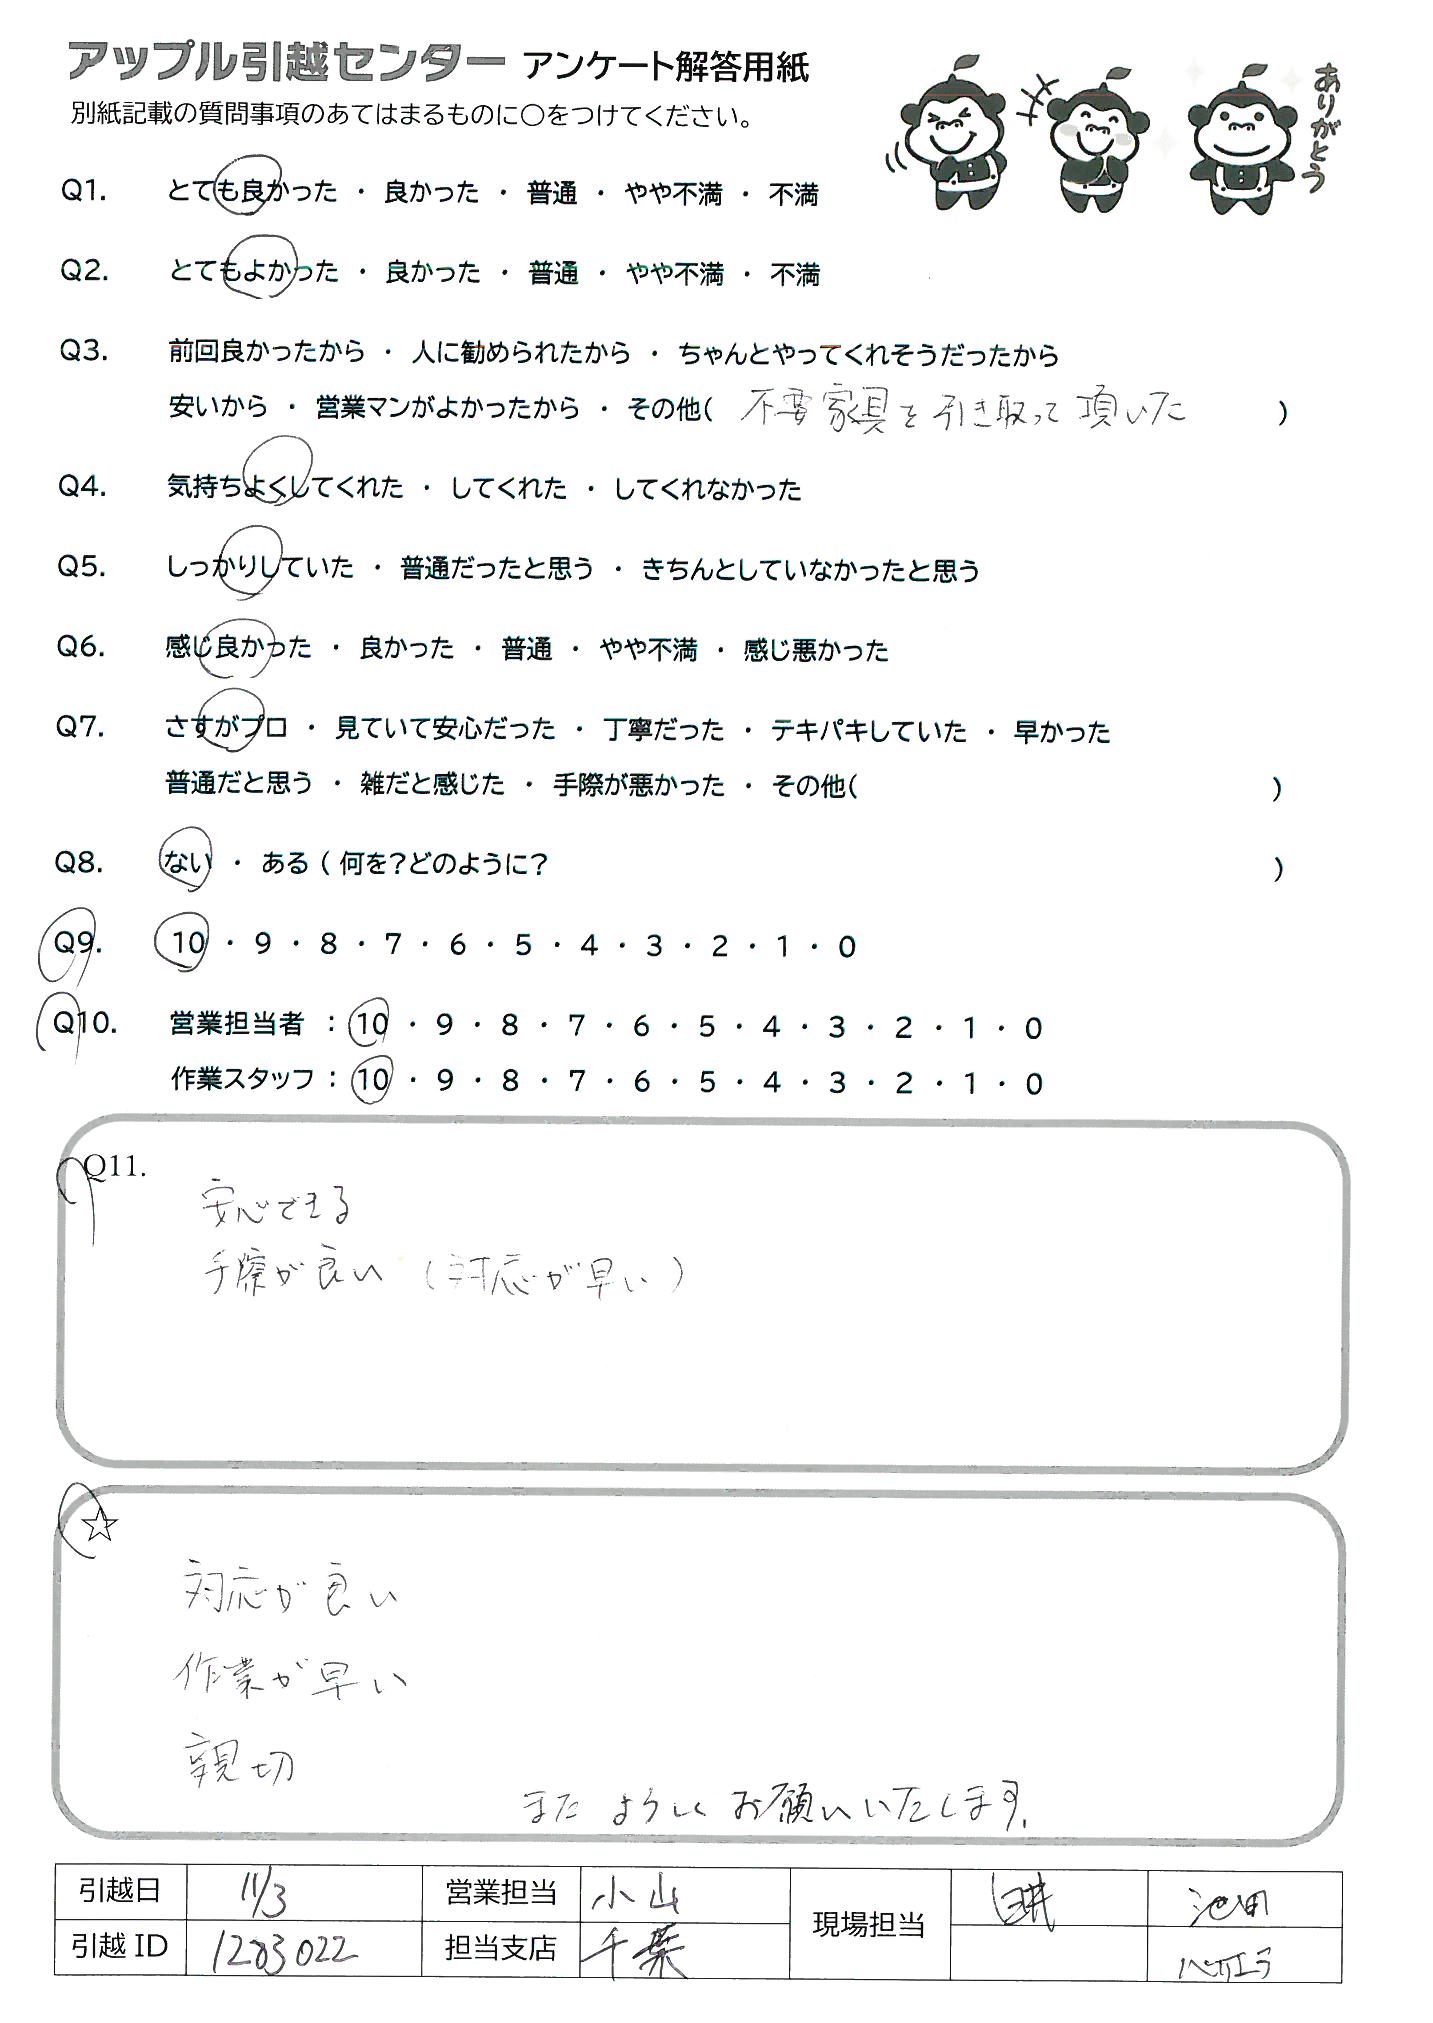 アップル引越センター アンケート解答用紙
別紙記載の質問事項のあてはまるものに○をつけてください。
ありがとう
Q1. とても良かった ・ 良かった ・ 普通 ・ やや不満 ・ 不満
Q2. とてもよかった ・ 良かった ・ 普通 ・ やや不満 ・ 不満
Q3. 前回良かったから ・ 人に勧められたから ・ ちゃんとやってくれそうだったから
安いから ・ 営業マンがよかったから ・ その他( 不要家具を引き取って頂いた )
Q4. 気持ちよくしてくれた ・ してくれた ・ してくれなかった
Q5. しっかりしていた ・ 普通だったと思う ・ きちんとしていなかったと思う
Q6. 感じ良かった ・ 良かった ・ 普通 ・ やや不満 ・ 感じ悪かった
Q7. さすがプロ ・ 見ていて安心だった ・ 丁寧だった ・ テキパキしていた ・ 早かった
普通だと思う ・ 雑だと感じた ・ 手際が悪かった ・ その他( )
Q8. ない ・ ある ( 何を?どのように? )
Q9. 10 ・ 9 ・ 8 ・ 7 ・ 6 ・ 5 ・ 4 ・ 3 ・ 2 ・ 1 ・ 0
Q10. 営業担当者 : 10 ・ 9 ・ 8 ・ 7 ・ 6 ・ 5 ・ 4 ・ 3 ・ 2 ・ 1 ・ 0
作業スタッフ : 10 ・ 9 ・ 8 ・ 7 ・ 6 ・ 5 ・ 4 ・ 3 ・ 2 ・ 1 ・ 0
Q11.
安心できる
手際が良い (対応が早い)
☆
対応が良い
作業が早い
親切
またよろしくお願いいたします.
引越日 11/3 営業担当 小山 現場担当 池田
引越 ID 1203022 担当支店 千葉